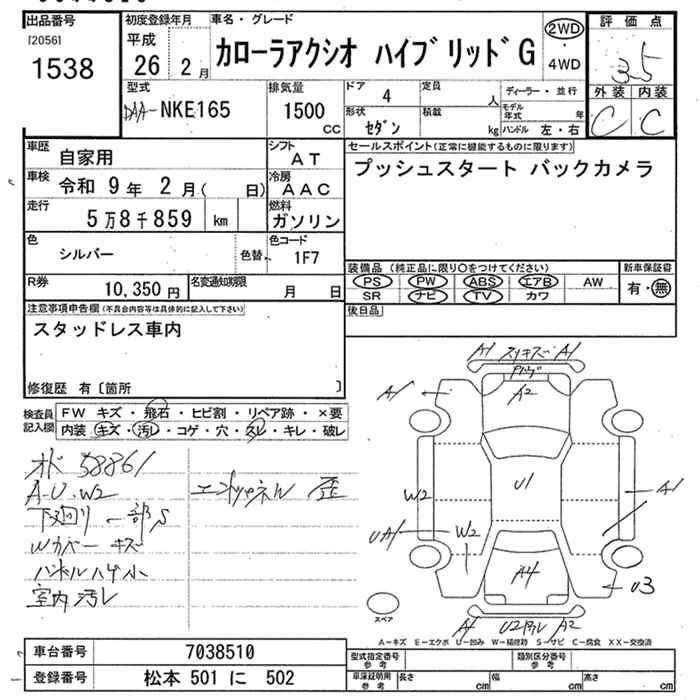 出品番号
[2056]
1538
初度登録年月
平成
26 2月
車名・グレード
カローラアクシオ ハイブリッドG
2WD
・
4WD
評価点
3.5
外装 内装
C C
型式
DAA-NKE165
排気量
1500
CC
ドア 4
定員 人
形状 セダン
積載 kg
ディーラー・並行
モデル年式 年
ハンドル 左・右
車歴 自家用
シフト AT
車検 令和 9年 2月( 日)
冷房 AAC
走行 5万8千859 km
燃料 ガソリン
色 シルバー
色替
色コード 1F7
R券 10,350円
名変通知期限 月 日
セールスポイント(正常に機能するものに限ります)
プッシュスタート バックカメラ
装備品 (純正品に限り○をつけてください)
PS PW ABS エアB AW
SR ナビ TV カワ
新車保証書
有・無
後日品
注意事項申告欄(不具合内容等は具体的に記入して下さい)
スタッドレス車内
修復歴 有〔箇所 〕
検査員記入欄
FW キズ・飛石・ヒビ割・リペア跡・×要
内装 キズ・汚レ・コゲ・穴・スレ・キレ・破レ
オド 58861
A-U.W2
下廻り 一部S
Wカバー キズ
ハンドルハゲ小
室内汚レ
エンドパネル 歪
A1 スリキズ A1
A2
A1
U1
W2
A1
UA1
W2
A4
U3
A1
U2
A2
スペア
A-キズ E-エクボ U-凹み W-補修跡 S-サビ C-腐食 XX-交換済
車台番号 7038510
登録番号 松本 501 に 502
型式指定番号 参考
類別区分番号 参考
車庫証明用 参考
長さ cm
幅 cm
高さ cm